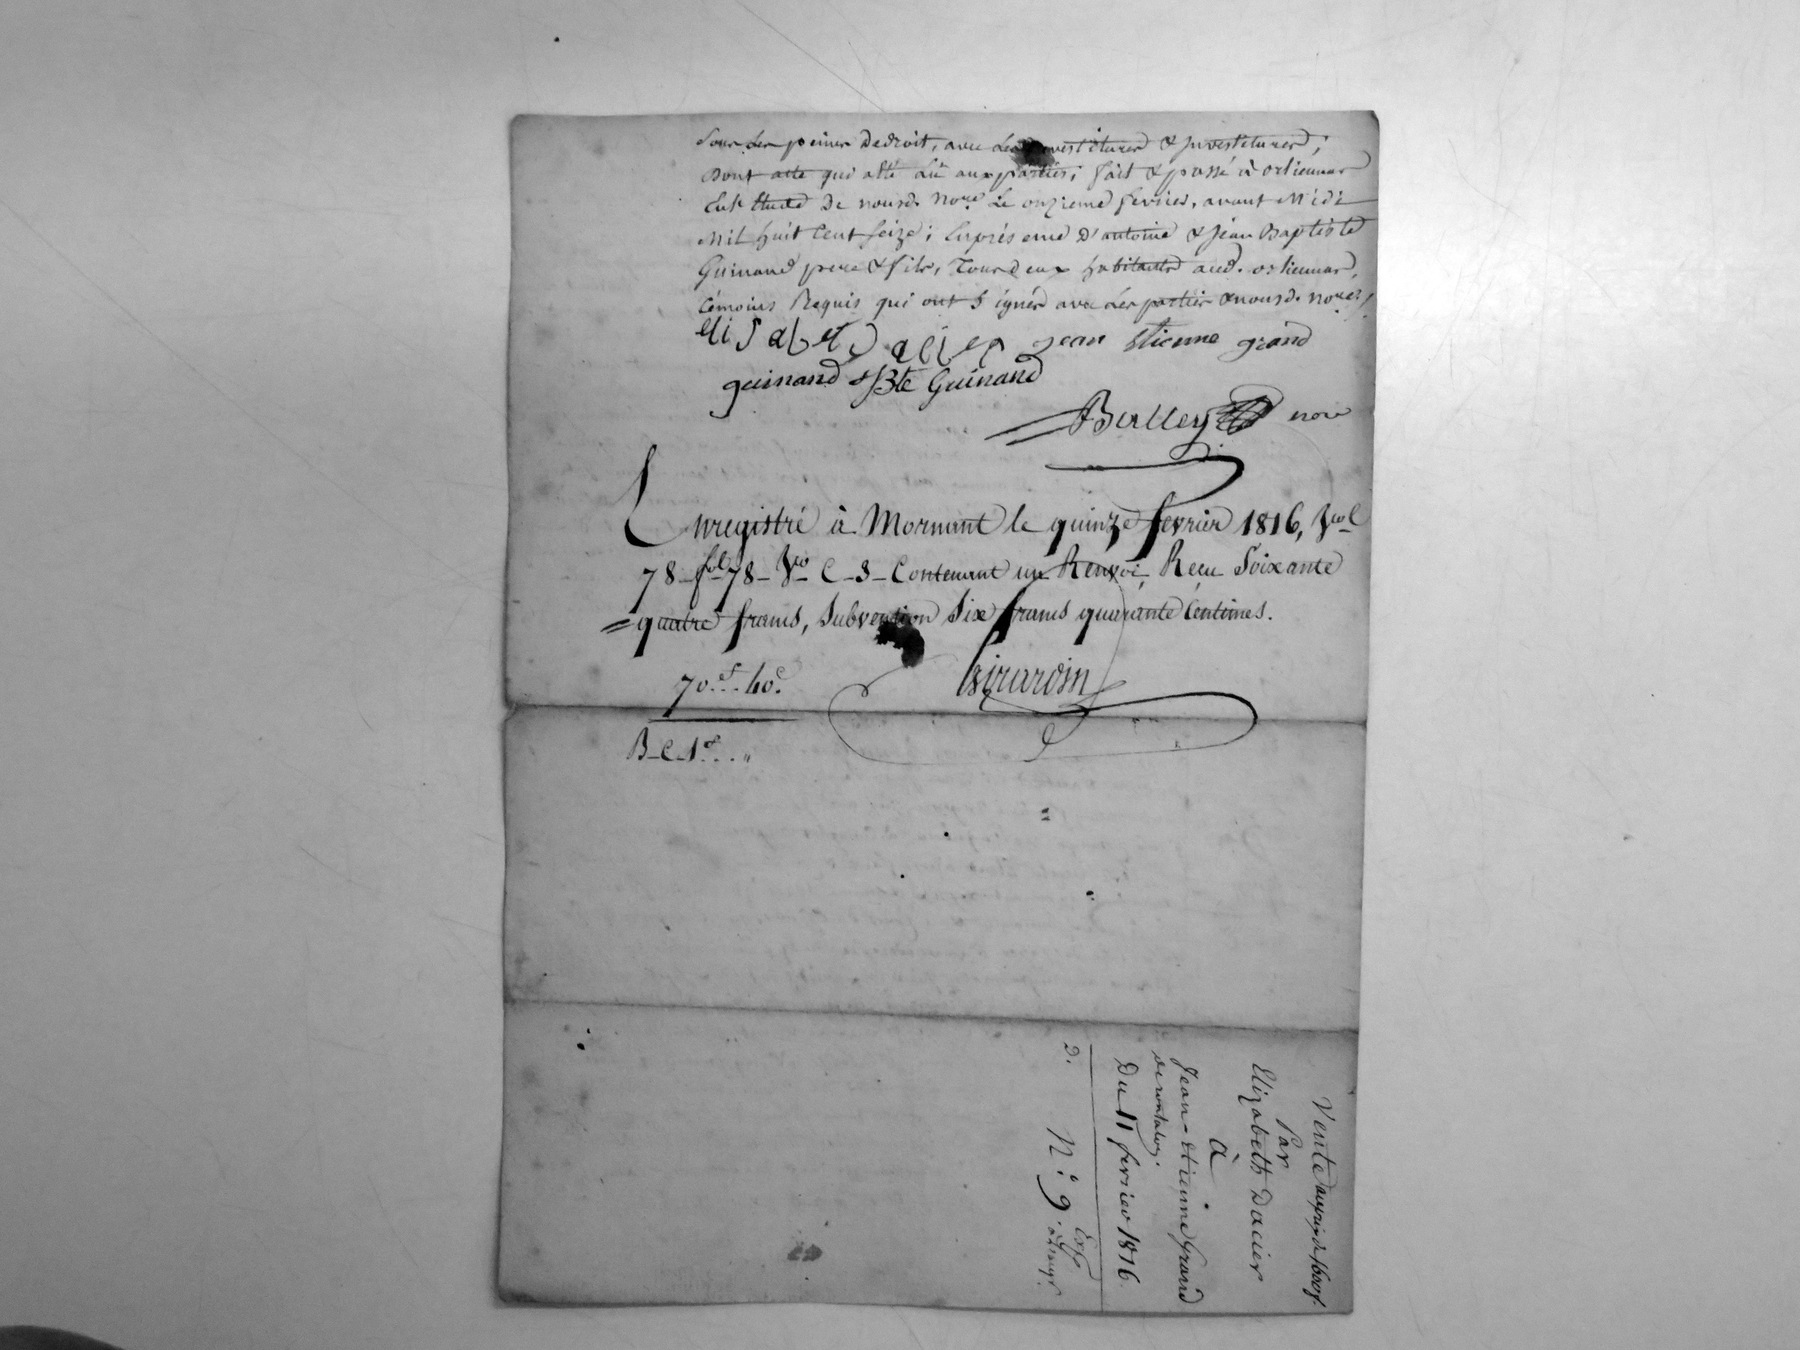 sous les peines de droit, avec les devestitures & investitures;
Dont acte qui a été lû aux parties; fait & passé à orliennas
Ent. Etude de nousd. Nore. Le onzieme fevrier, avant Midi
Mil huit Cent seize; En présence d'antoine & Jean Baptiste
Guinand pere & fils, Tous deux habitants aud. orliennas,
témoins Requis qui ont signés avec les parties & nousd. nore./.
elisabet dacier jean etienne grand
guinand & Bte Guinand
nore
Enregistré à Mornant le quinze fevrier 1816, Vol
78 fol 78 Vo C 3 Contenant un Renvoi, Reçu Soixante
quatre francs, Subvention Six francs quarante Centimes.
Girardin
70.f. 40.c
B C 1f. . "
Vente au prix de 1600f.
Par
Elizabeth Dacier
à
Jean-Etienne Grand
Du 11 fevrier 1816
2.
N.° 9